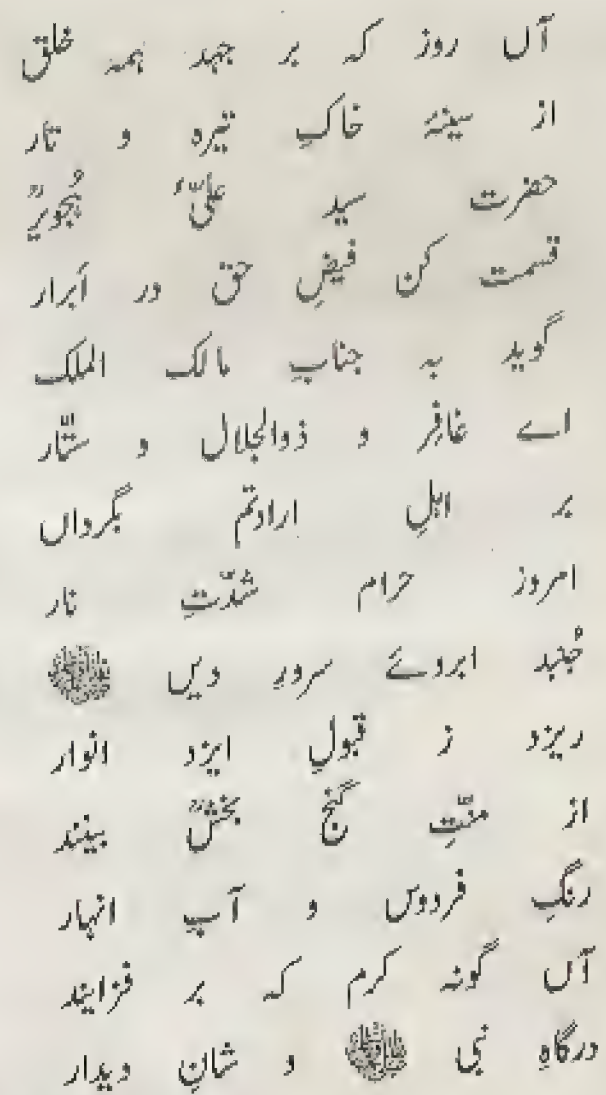 آں روز کہ بر جہد ہمہ خلق
از سینۂ خاکِ تیرہ و تار
حضرت سید علیؒ ہُجویرؒ
قسمت کن فیضِ حق در اَبرار
گوید بہ جنابِ مالک الملک
اے غافِر و ذوالجلال و ستّار
بر اہلِ ارادتم بگرداں
امروز حرام شدّتِ نار
جُنبد ابروئے سرورِ دیں ﷺ
ریزد ز قبولِ ایزد انوار
از منّتِ گنج بخشؒ بینند
رنگِ فردوس و آبِ انہار
آں گونہ کرم کہ بر فزایند
درگاہِ نبی ﷺ و شانِ دیدار